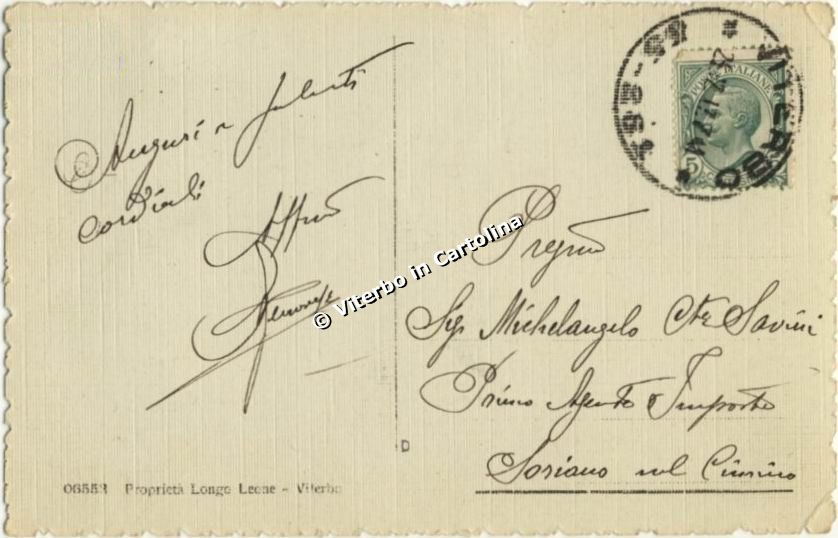 Auguri e saluti
cordiali
Affmo
© Viterbo in Cartolina
Pregmo
Sig Michelangelo Cte Savini
Primo Agente Imposte
Soriano nel Cimino
06553 Proprietà Longo Leone - Viterbo
D
POSTE ITALIANE
5
VITERBO